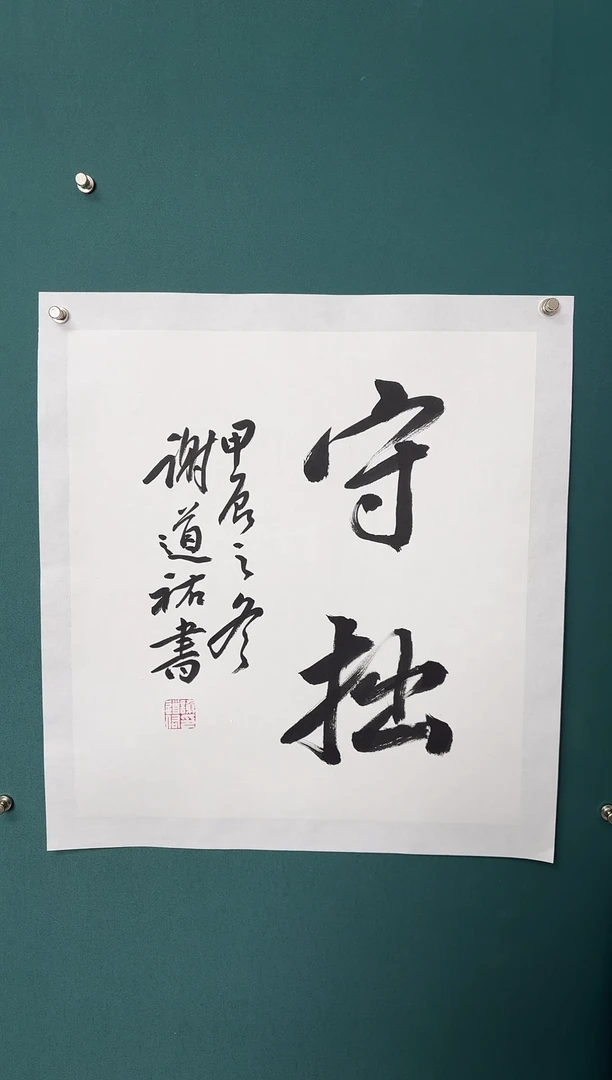 守拙
甲辰之冬
谢道祐書